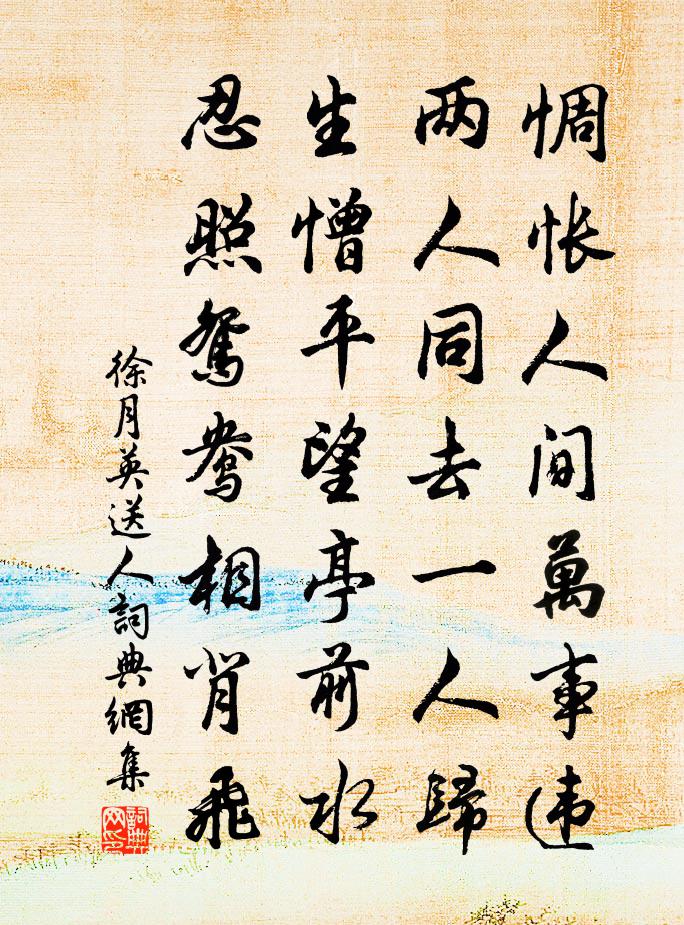 惆怅人间萬事违
两人同去一人歸
生憎平望亭前水
忍照鸳鸯相背飛
徐月英送人詞典網集
詞典
网印